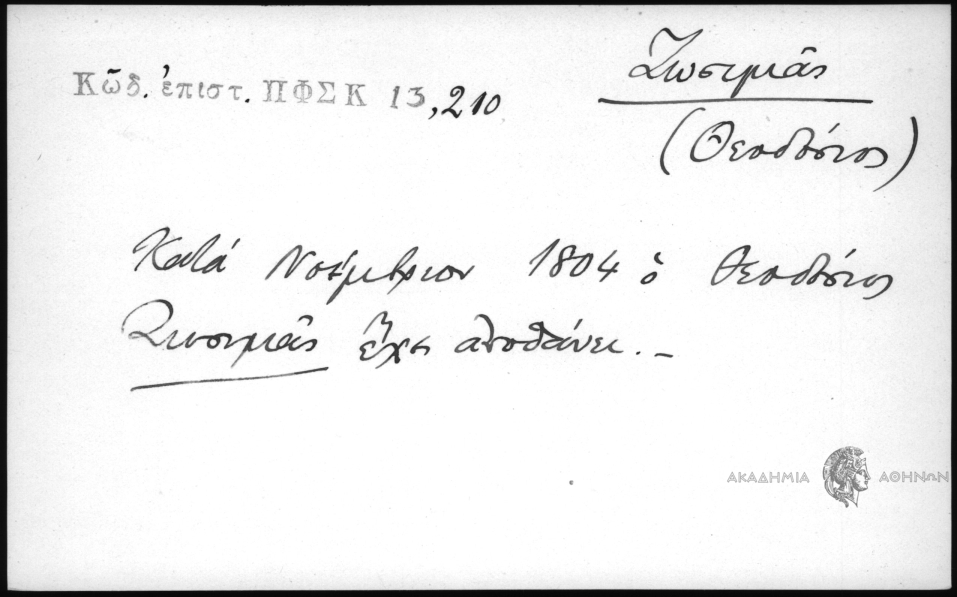 Κῶδ. ἐπιστ. ΠΦΣΚ 13,210
Ζωσιμᾶς
(Θεοδόσιος)
Κατά Νοέμβριον 1804 ὁ Θεοδόσιος
Ζωσιμᾶς ἔχει ἀποθάνει. –
ΑΚΑΔΗΜΙΑ ΑΘΗΝΩΝ